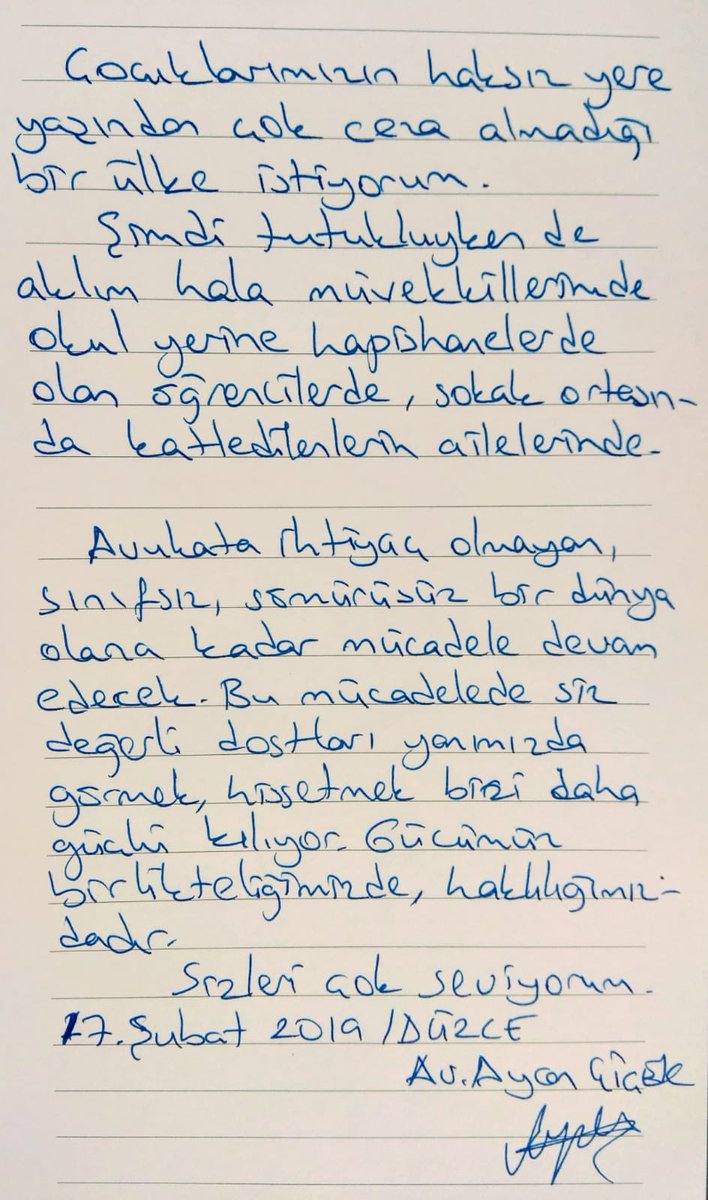 Çocuklarımızın haksız yere
yaşından çok ceza almadığı
bir ülke istiyorum.
Şimdi tutukluyken de
aklım hala müvekkillerimde
okul yerine hapishanelerde
olan öğrencilerde, sokak ortasın-
da katledilenlerin ailelerinde.
Avukata ihtiyaç olmayan,
sınıfsız, sömürüsüz bir dünya
olana kadar mücadele devam
edecek. Bu mücadelede siz
değerli dostları yanımızda
görmek, hissetmek bizi daha
güçlü kılıyor. Gücümüz
birlikteliğimizde, haklılığımız-
dadır.
Sizleri çok seviyorum.
17.Şubat 2019 /DÜZCE
Av. Aycan Çiçek